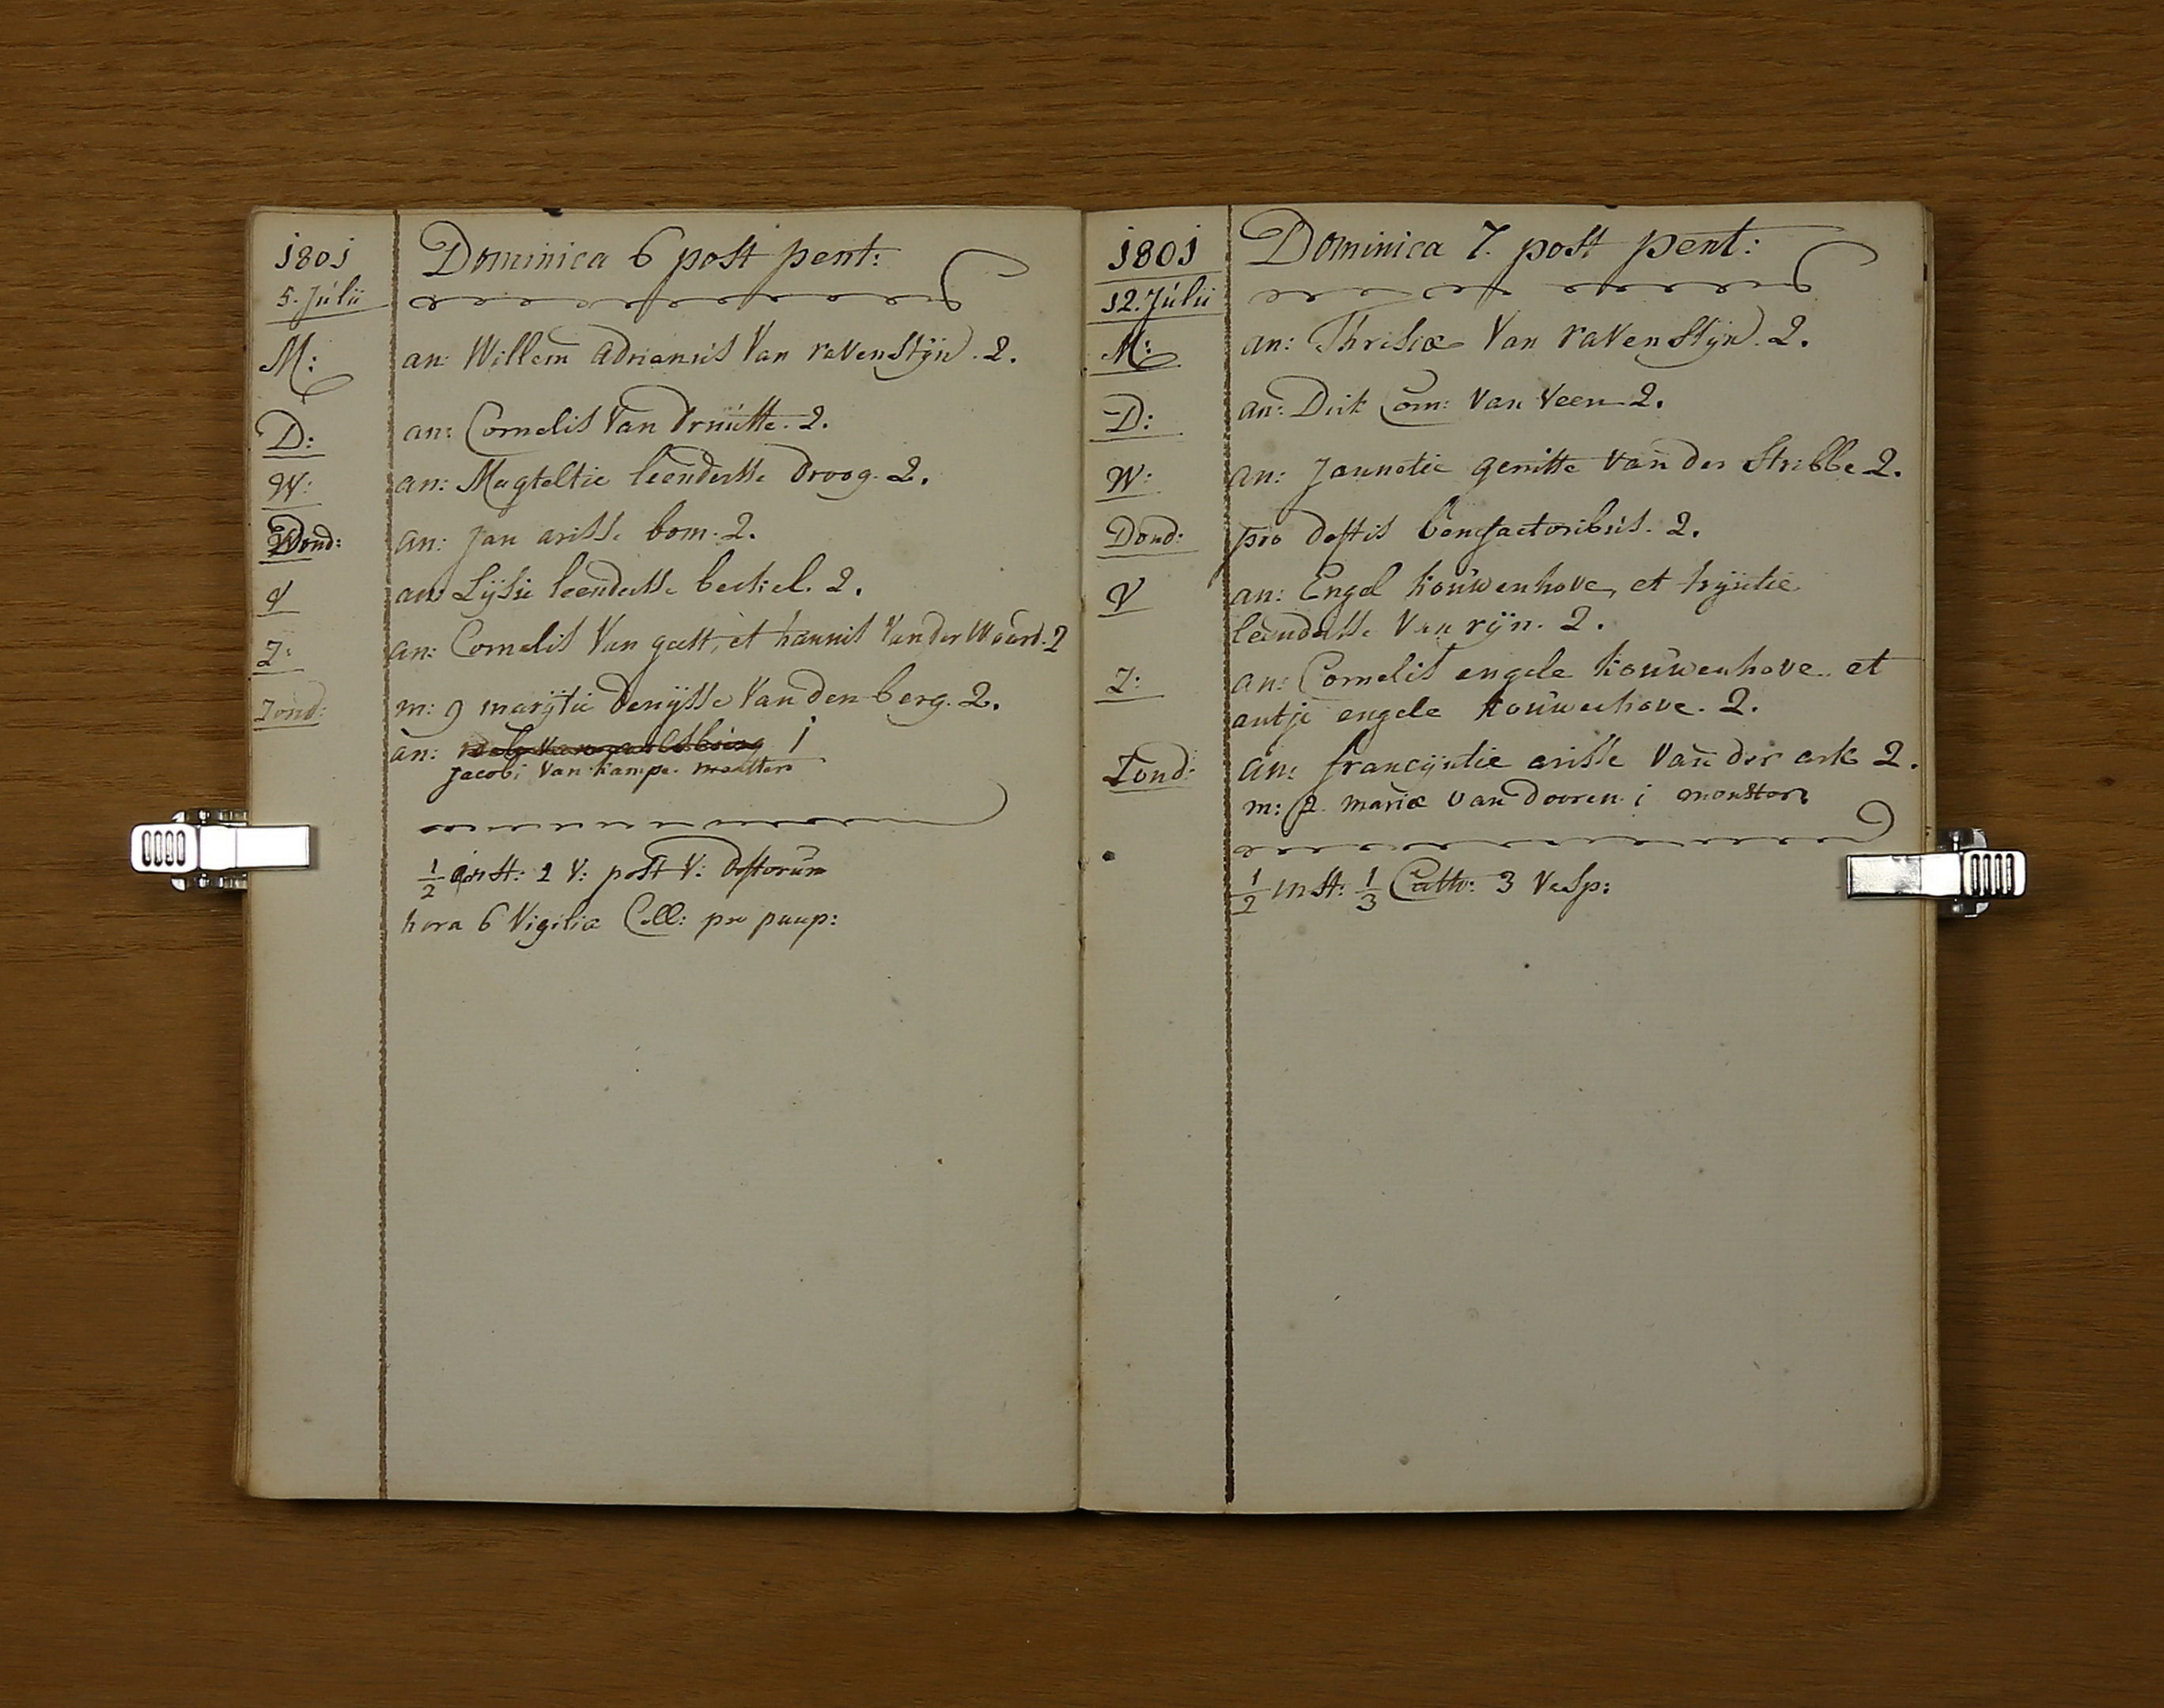 1801
Dominica 6 post pent:
5. Julii
M: an: Willem adrianus Van ravenstijn. 2.
D: an: Cornelis Van Druitte. 2.
W: an: Magteltie leenderss. Droog. 2.
Dond: an: Jan ariss. bom. 2.
V an: Lijsie leenderss. 2.
Z: an: Cornelis Van geest, et hannis Van der Waard. 2
Zond: m: 9 marijtie Denijsse Van den berg. 2.
an: 1
Jacobi Van Kampe.
1/2 inst: 2 V: post V: deftorum
hora 6 Vigiliæ Coll: pro paup:
1801
Dominica 7. post pent:
12. Julii
M: an: Thresiæ Van ravenstijn. 2.
D: an: Dirk Corn: Van Veen 2.
W: an: Jannetie gerritse van der Stribbe 2.
Dond: pro deftis benefactoribus. 2.
V an: Engel kouwenhove, et trijntie
leenderss. Van rijn. 2.
Z: an: Cornelis engele kouwenhove. et
antje engele kouwenhove. 2.
Zond: an: francijntie arisse Van der ark 2.
m: 2. mariæ van Dooren. 1 monster
1/2 inst: 1/3 Cath: 3 Vesp: